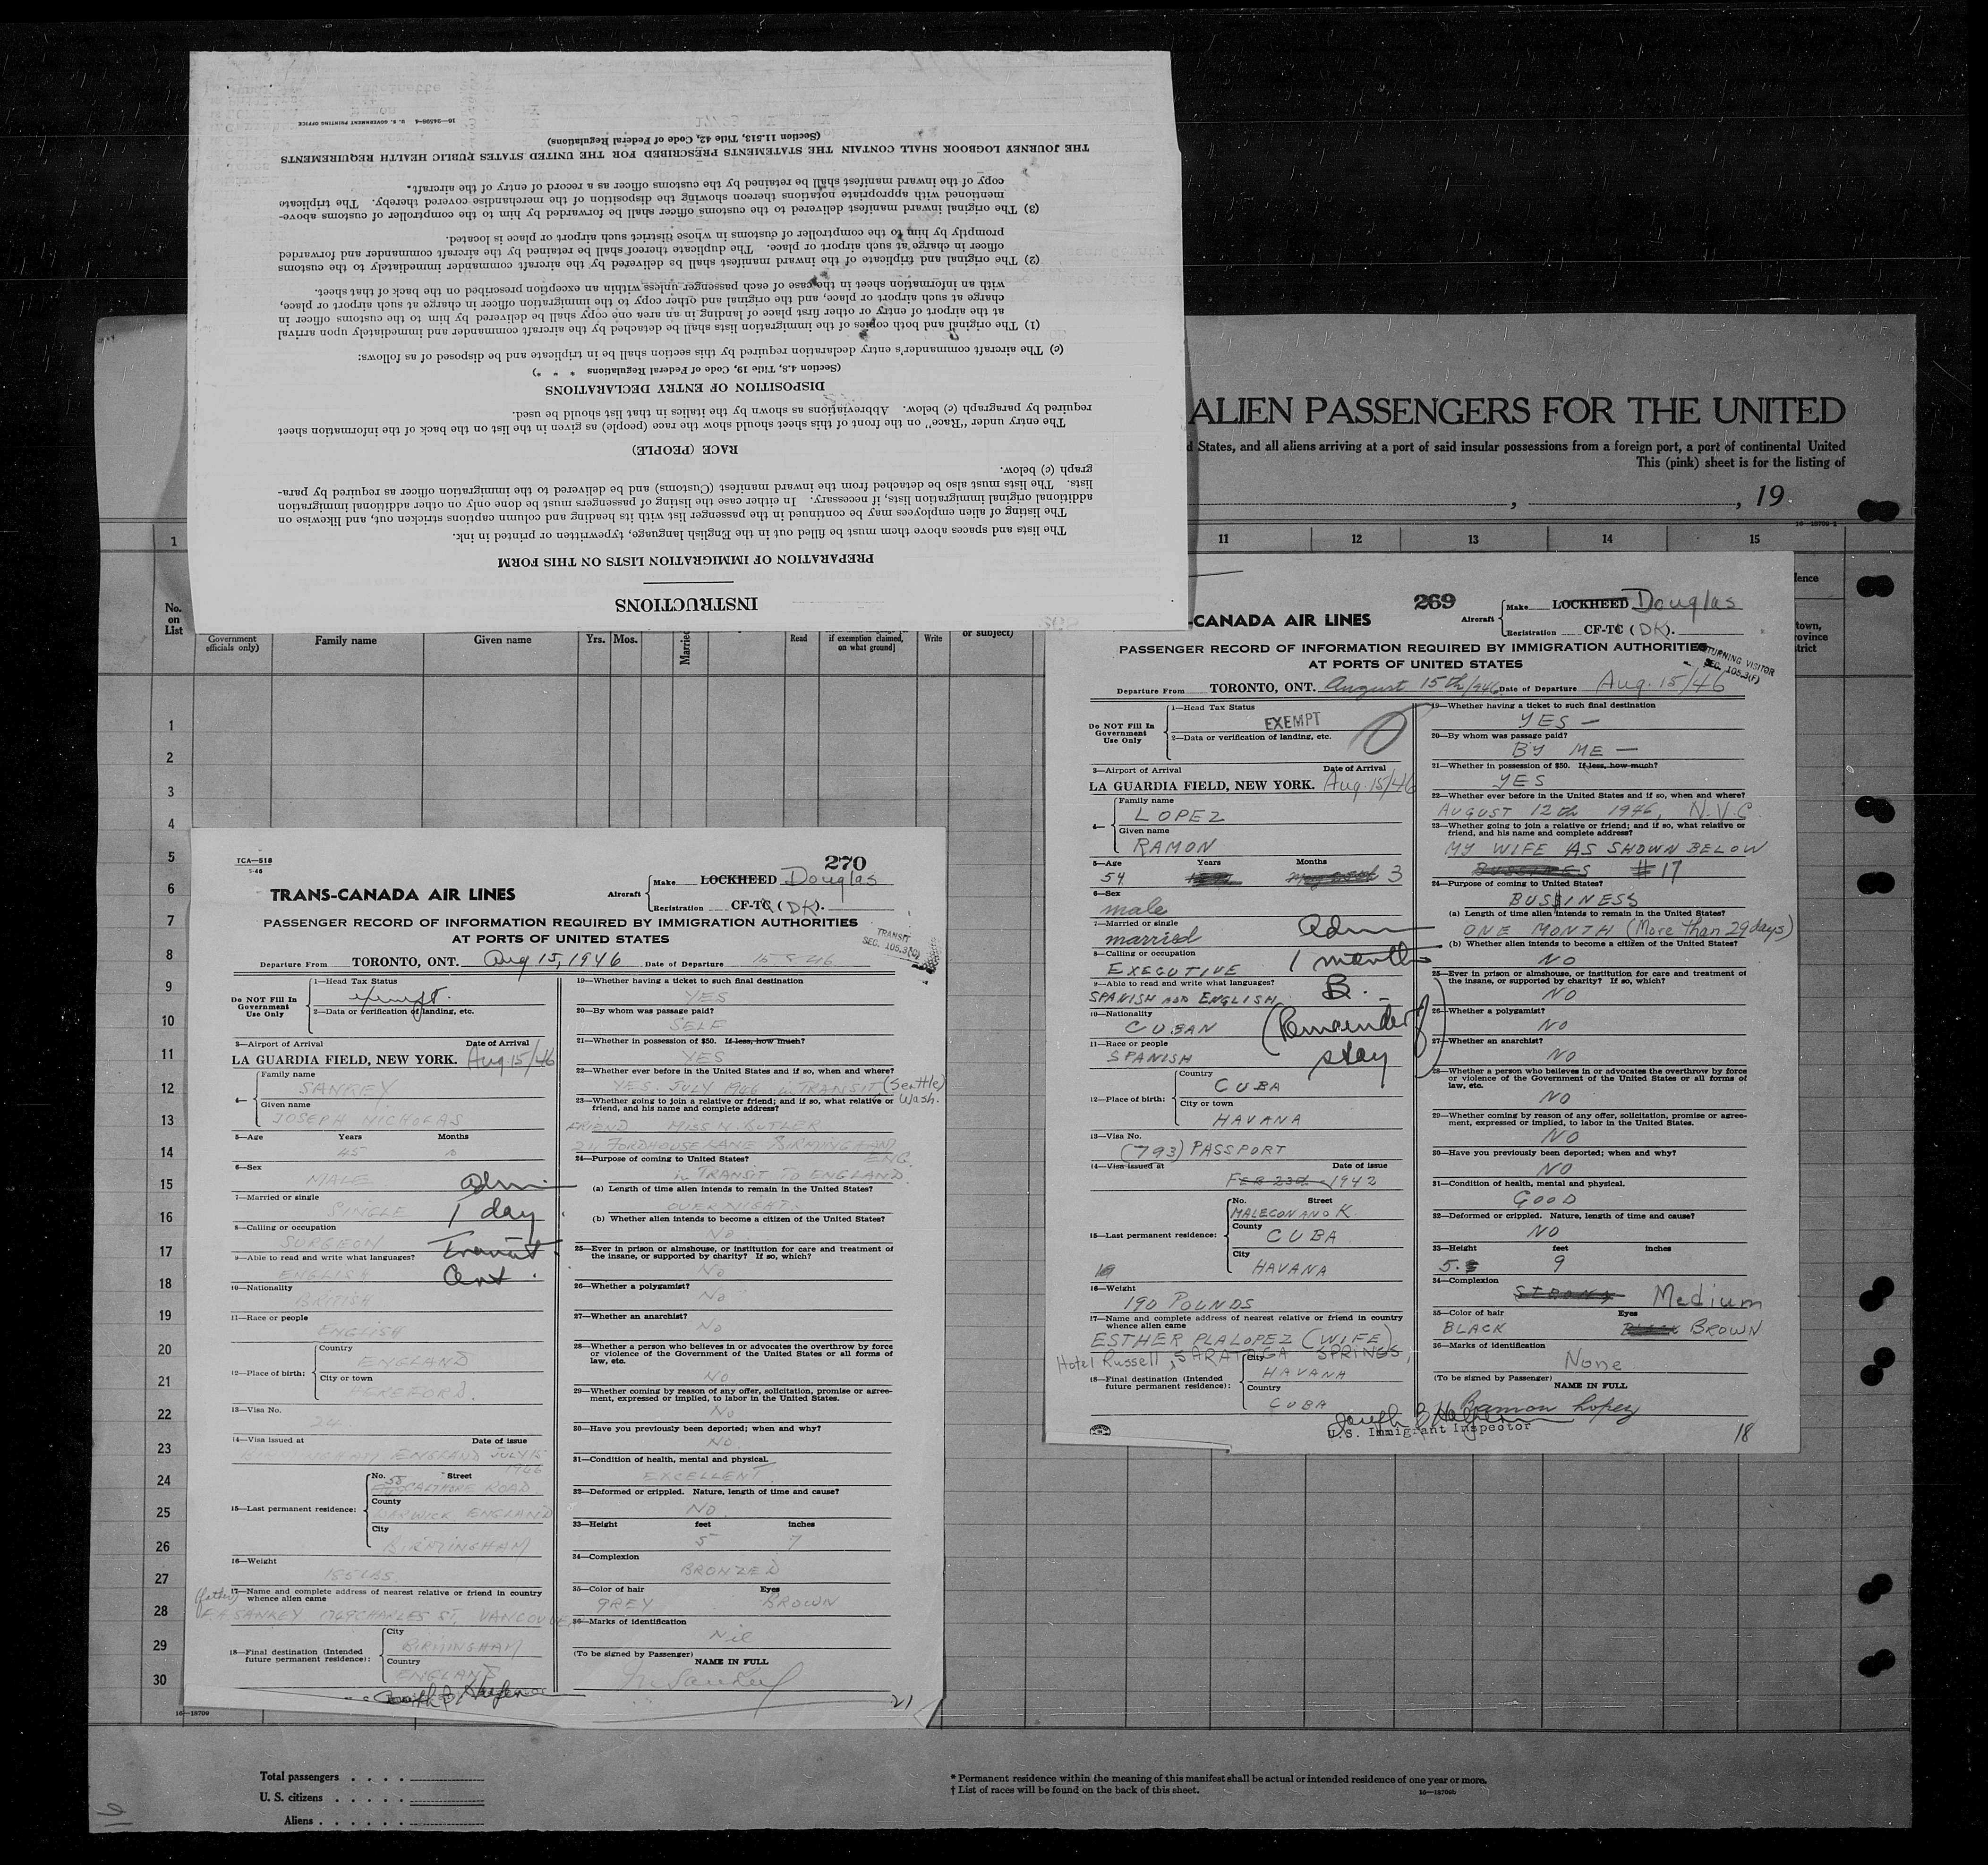 INSTRUCTIONS
PREPARATION OF IMMIGRATION LISTS ON THIS FORM
The lists and spaces above them must be filled out in the English language, typewritten or printed in ink.
The listing of alien employees may be continued in the passenger list with its heading and column captions stricken out, and likewise on
additional original immigration lists, if necessary. In either case the listing of passengers must be done only on other additional immigration
lists. The lists must also be detached from the inward manifest (Customs) and be delivered to the immigration officer as required by para-
graph (c) below.
RACE (PEOPLE)
The entry under "Race" on the front of this sheet should show the race (people) as given in the list on the back of the information sheet
required by paragraph (c) below. Abbreviations as shown by the italics in that list should be used.
DISPOSITION OF ENTRY DECLARATIONS
(Section 4.8, Title 19, Code of Federal Regulations * * *)
(c) The aircraft commander's entry declaration required by this section shall be in triplicate and be disposed of as follows:
(1) The original and both copies of the immigration lists shall be detached by the aircraft commander and immediately upon arrival
at the airport of entry or other first place of landing in an area one copy shall be delivered by him to the customs officer in
charge at such airport or place, and the original and other copy to the immigration officer in charge at such airport or place,
with an information sheet in the case of each passenger unless within an exception prescribed on the back of that sheet.
(2) The original and triplicate of the inward manifest shall be delivered by the aircraft commander immediately to the customs
officer in charge at such airport or place. The duplicate thereof shall be retained by the aircraft commander and forwarded
promptly by him to the comptroller of customs in whose district such airport or place is located.
(3) The original inward manifest delivered to the customs officer shall be forwarded by him to the comptroller of customs above-
mentioned with appropriate notations thereon showing the disposition of the merchandise covered thereby. The triplicate
copy of the inward manifest shall be retained by the customs officer as a record of entry of the aircraft.
THE JOURNEY LOGBOOK SHALL CONTAIN THE STATEMENTS PRESCRIBED FOR THE UNITED STATES PUBLIC HEALTH REQUIREMENTS
(Section 11.513, Title 42, Code of Federal Regulations)
16—24599-4 U. S. GOVERNMENT PRINTING OFFICE
ALIEN PASSENGERS FOR THE UNITED
d States, and all aliens arriving at a port of said insular possessions from a foreign port, a port of continental United
This (pink) sheet is for the listing of
, , 19
16—18709-1
1 11 12 13 14 15
No.
on
List
Government
officials only)
Family name
Given name
Yrs. Mos.
Married
Read
if exemption claimed,
on what ground]
Write
or subject)
lence
town,
ovince
strict
1
2
3
4
5
6
7
8
9
10
11
12
13
14
15
16
17
18
19
20
21
22
23
24
25
26
27
28
29
30
16—18709
Total passengers . . . .
U. S. citizens . . . . .
Aliens . . . . . .
* Permanent residence within the meaning of this manifest shall be actual or intended residence of one year or more.
† List of races will be found on the back of this sheet.
16—18709b
269
-CANADA AIR LINES
Aircraft
Make LOCKHEED Douglas
Registration CF-TC (DK).
PASSENGER RECORD OF INFORMATION REQUIRED BY IMMIGRATION AUTHORITIES
AT PORTS OF UNITED STATES
TURNING VISITOR
SEC. 105.3(F)
Departure From TORONTO, ONT. August 15th/946 Date of Departure Aug. 15/46
Do NOT Fill In
Government
Use Only
1—Head Tax Status
EXEMPT
2—Data or verification of landing, etc.
3—Airport of Arrival Date of Arrival
LA GUARDIA FIELD, NEW YORK. Aug. 15/46
4—
Family name
LOPEZ
Given name
RAMON
5—Age Years Months
54 3
6—Sex
male
7—Married or single
married
8—Calling or occupation
EXECUTIVE
9—Able to read and write what languages?
SPANISH AND ENGLISH
10—Nationality
CUBAN
11—Race or people
SPANISH
12—Place of birth:
Country
CUBA
City or town
HAVANA
13—Visa No.
(793) PASSPORT
14—Visa issued at Date of issue
FEB 23rd 1942
15—Last permanent residence:
No. Street
MALECON AND K
County
CUBA
City
HAVANA
16—Weight
190 POUNDS
17—Name and complete address of nearest relative or friend in country
whence alien came
ESTHER PLALOPEZ (WIFE)
Hotel Russell, SARATOGA SPRINGS,
18—Final destination (Intended
future permanent residence):
City
HAVANA
Country
CUBA
Adm
1 month
B.
(Remainder of
stay)
19—Whether having a ticket to such final destination
YES —
20—By whom was passage paid?
BY ME —
21—Whether in possession of $50. If less, how much?
YES
22—Whether ever before in the United States and if so, when and where?
AUGUST 12th 1946, N.Y.C
23—Whether going to join a relative or friend; and if so, what relative or
friend, and his name and complete address?
MY WIFE AS SHOWN BELOW
#17
24—Purpose of coming to United States?
BUSINESS
(a) Length of time alien intends to remain in the United States?
ONE MONTH (More than 29 days)
(b) Whether alien intends to become a citizen of the United States?
NO
25—Ever in prison or almshouse, or institution for care and treatment of
the insane, or supported by charity? If so, which?
NO
26—Whether a polygamist?
NO
27—Whether an anarchist?
NO
28—Whether a person who believes in or advocates the overthrow by force
or violence of the Government of the United States or all forms of
law, etc.
NO
29—Whether coming by reason of any offer, solicitation, promise or agree-
ment, expressed or implied, to labor in the United States.
NO
30—Have you previously been deported; when and why?
NO
31—Condition of health, mental and physical.
GOOD
32—Deformed or crippled. Nature, length of time and cause?
NO
33—Height feet inches
5. 9
34—Complexion
Medium
35—Color of hair Eyes
BLACK BROWN
36—Marks of identification
None
(To be signed by Passenger)
NAME IN FULL
Ramon Lopez
U.S. Immigrant Inspector
18
TCA—518
270
TRANS-CANADA AIR LINES
Aircraft
Make LOCKHEED Douglas
Registration CF-TC (DK).
PASSENGER RECORD OF INFORMATION REQUIRED BY IMMIGRATION AUTHORITIES
AT PORTS OF UNITED STATES
TRANSIT
SEC. 105.3(C)
Departure From TORONTO, ONT. Aug 15, 1946 Date of Departure 15 8 46
Do NOT Fill In
Government
Use Only
1—Head Tax Status
exempt.
2—Data or verification of landing, etc.
3—Airport of Arrival Date of Arrival
LA GUARDIA FIELD, NEW YORK. Aug. 15/46
4—
Family name
SANKEY
Given name
JOSEPH NICHOLAS
5—Age Years Months
45 0
6—Sex
MALE
7—Married or single
SINGLE
8—Calling or occupation
SURGEON
9—Able to read and write what languages?
ENGLISH
10—Nationality
BRITISH
11—Race or people
ENGLISH
12—Place of birth:
Country
ENGLAND
City or town
HEREFORD.
13—Visa No.
24
14—Visa issued at Date of issue
ENGLAND JULY 15
1946
15—Last permanent residence:
No. Street
55
ROAD
County
WARWICK ENGLAND
City
BIRMINGHAM
16—Weight
185 LBS.
17—Name and complete address of nearest relative or friend in country
whence alien came
(father)
SANKEY 1769 CHARLES ST. VANCOUVER
18—Final destination (Intended
future permanent residence):
City
BIRMINGHAM
Country
ENGLAND
Adm
1 day
Transit
Cert.
19—Whether having a ticket to such final destination
YES
20—By whom was passage paid?
SELF
21—Whether in possession of $50. If less, how much?
YES
22—Whether ever before in the United States and if so, when and where?
YES. JULY 1946 in TRANSIT (Seattle)
Wash.
23—Whether going to join a relative or friend; and if so, what relative or
friend, and his name and complete address?
FRIEND MISS N. BUTLER
FORDHOUSE LANE BIRMINGHAM
ENG.
24—Purpose of coming to United States?
in TRANSIT TO ENGLAND.
(a) Length of time alien intends to remain in the United States?
OVERNIGHT
(b) Whether alien intends to become a citizen of the United States?
No
25—Ever in prison or almshouse, or institution for care and treatment of
the insane, or supported by charity? If so, which?
No
26—Whether a polygamist?
No
27—Whether an anarchist?
No
28—Whether a person who believes in or advocates the overthrow by force
or violence of the Government of the United States or all forms of
law, etc.
NO
29—Whether coming by reason of any offer, solicitation, promise or agree-
ment, expressed or implied, to labor in the United States.
No
30—Have you previously been deported; when and why?
NO
31—Condition of health, mental and physical.
EXCELLENT
32—Deformed or crippled. Nature, length of time and cause?
NO
33—Height feet inches
5 7
34—Complexion
BRONZED
35—Color of hair Eyes
GREY BROWN
36—Marks of identification
Nil
(To be signed by Passenger)
NAME IN FULL
21